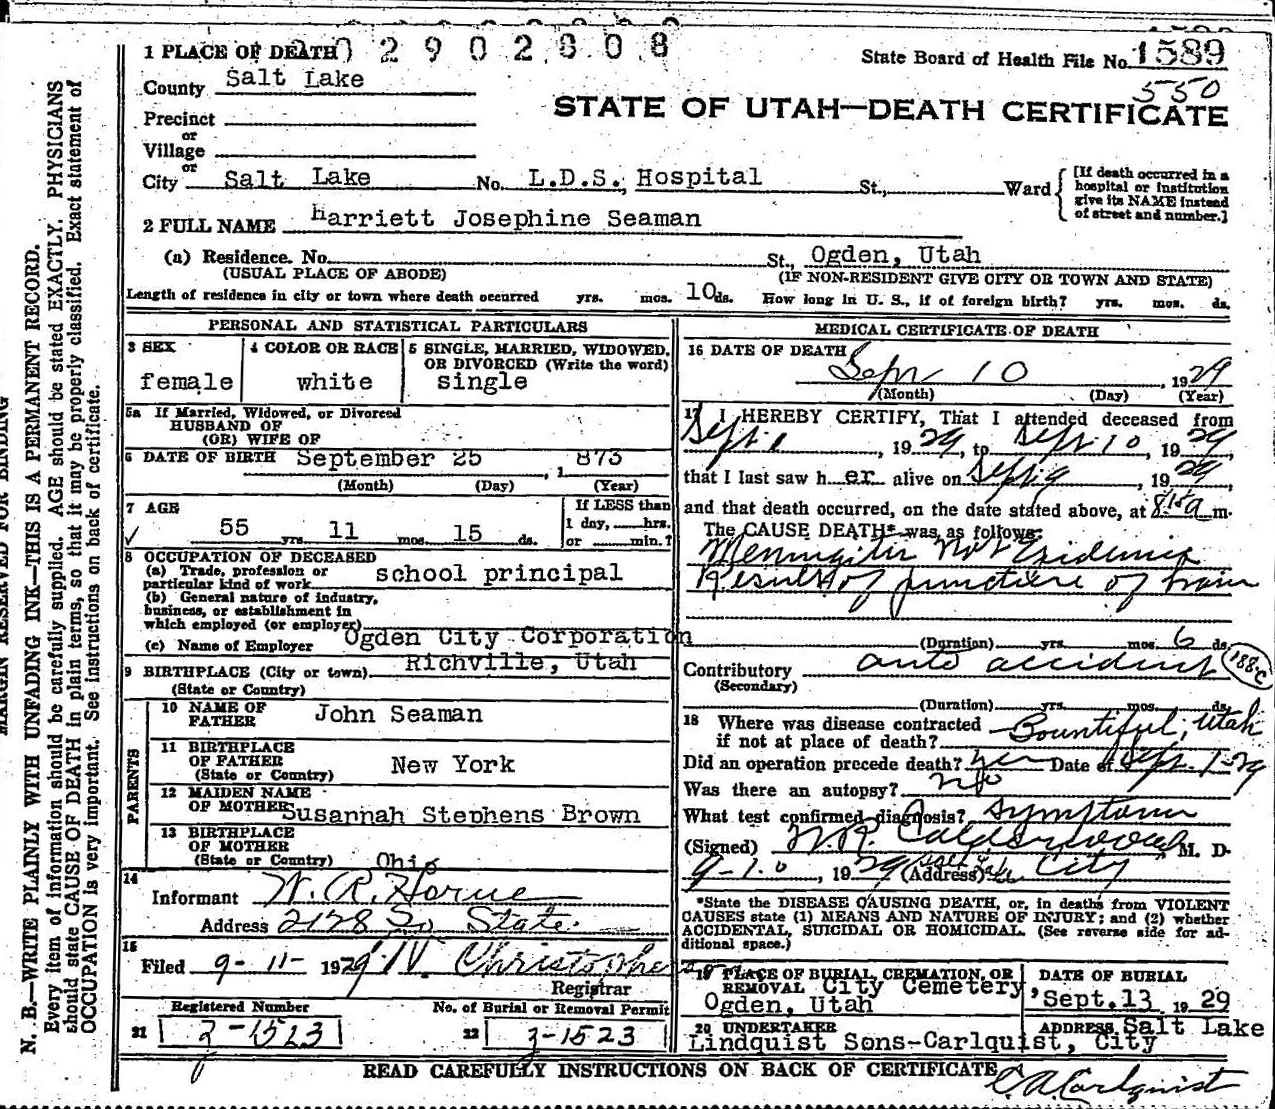 1 PLACE OF DEATH 0 2 9 0 2 8 0 8
State Board of Health File No. 1589
550
County Salt Lake
STATE OF UTAH—DEATH CERTIFICATE
Precinct
or
Village
or
City Salt Lake No. L.D.S. Hospital St., Ward
[If death occurred in a hospital or institution give its NAME instead of street and number.]
2 FULL NAME Harriett Josephine Seaman
(a) Residence. No. St., Ogden, Utah
(USUAL PLACE OF ABODE) (IF NON-RESIDENT GIVE CITY OR TOWN AND STATE)
Length of residence in city or town where death occurred yrs. mos. 10 ds. How long in U. S., if of foreign birth? yrs. mos. ds.
PERSONAL AND STATISTICAL PARTICULARS
3 SEX
female
4 COLOR OR RACE
white
5 SINGLE, MARRIED, WIDOWED, OR DIVORCED (Write the word)
single
5a If Married, Widowed, or Divorced
HUSBAND OF
(OR) WIFE OF
6 DATE OF BIRTH September 25, 1873
(Month) (Day) (Year)
7 AGE
55 yrs. 11 mos. 15 ds.
If LESS than
1 day, hrs.
or min.?
8 OCCUPATION OF DECEASED
(a) Trade, profession or
particular kind of work school principal
(b) General nature of industry,
business, or establishment in
which employed (or employer)
(c) Name of Employer Ogden City Corporation
9 BIRTHPLACE (City or town) Richville, Utah
(State or Country)
PARENTS
10 NAME OF
FATHER John Seaman
11 BIRTHPLACE
OF FATHER New York
(State or Country)
12 MAIDEN NAME
OF MOTHER Susannah Stephens Brown
13 BIRTHPLACE
OF MOTHER
(State or Country) Ohio
14
Informant W. R. Horne
Address 2128 So State
15
Filed 9-11- 1929 Christophe
Registrar
Registered Number
21 3-1523
No. of Burial or Removal Permit
22 3-1523
MEDICAL CERTIFICATE OF DEATH
16 DATE OF DEATH
Sept 10, 1929
(Month) (Day) (Year)
17 I HEREBY CERTIFY, That I attended deceased from
Sept 1, 1929, to Sept 10, 1929
that I last saw her alive on Sept 9, 1929
and that death occurred, on the date stated above, at 8:15 a m.
The CAUSE DEATH* was as follows:
Meningitis Not Epidemic
Results of puncture of brain
(Duration) yrs. mos. 6 ds.
Contributory auto accident 188c
(Secondary)
(Duration) yrs. mos. ds.
18 Where was disease contracted
if not at place of death? Bountiful, Utah
Did an operation precede death? yes Date of Sept. 1-29
Was there an autopsy? no
What test confirmed diagnosis? Symptoms
(Signed) W.R. Calderwood, M. D.
9-10, 1929 (Address) Salt Lake City
*State the DISEASE CAUSING DEATH, or, in deaths from VIOLENT
CAUSES state (1) MEANS AND NATURE OF INJURY; and (2) whether
ACCIDENTAL, SUICIDAL OR HOMICIDAL. (See reverse side for ad-
ditional space.)
19 PLACE OF BURIAL, CREMATION, OR
REMOVAL City Cemetery,
Ogden, Utah
DATE OF BURIAL
Sept. 13 1929
20 UNDERTAKER
Lindquist Sons-Carlquist, City
ADDRESS Salt Lake
READ CAREFULLY INSTRUCTIONS ON BACK OF CERTIFICATE
C.A. Carlquist
MARGIN RESERVED FOR BINDING
N. B.—WRITE PLAINLY WITH UNFADING INK—THIS IS A PERMANENT RECORD.
Every item of information should be carefully supplied. AGE should be stated EXACTLY. PHYSICIANS
should state CAUSE OF DEATH in plain terms, so that it may be properly classified. Exact statement of
OCCUPATION is very important. See instructions on back of certificate.